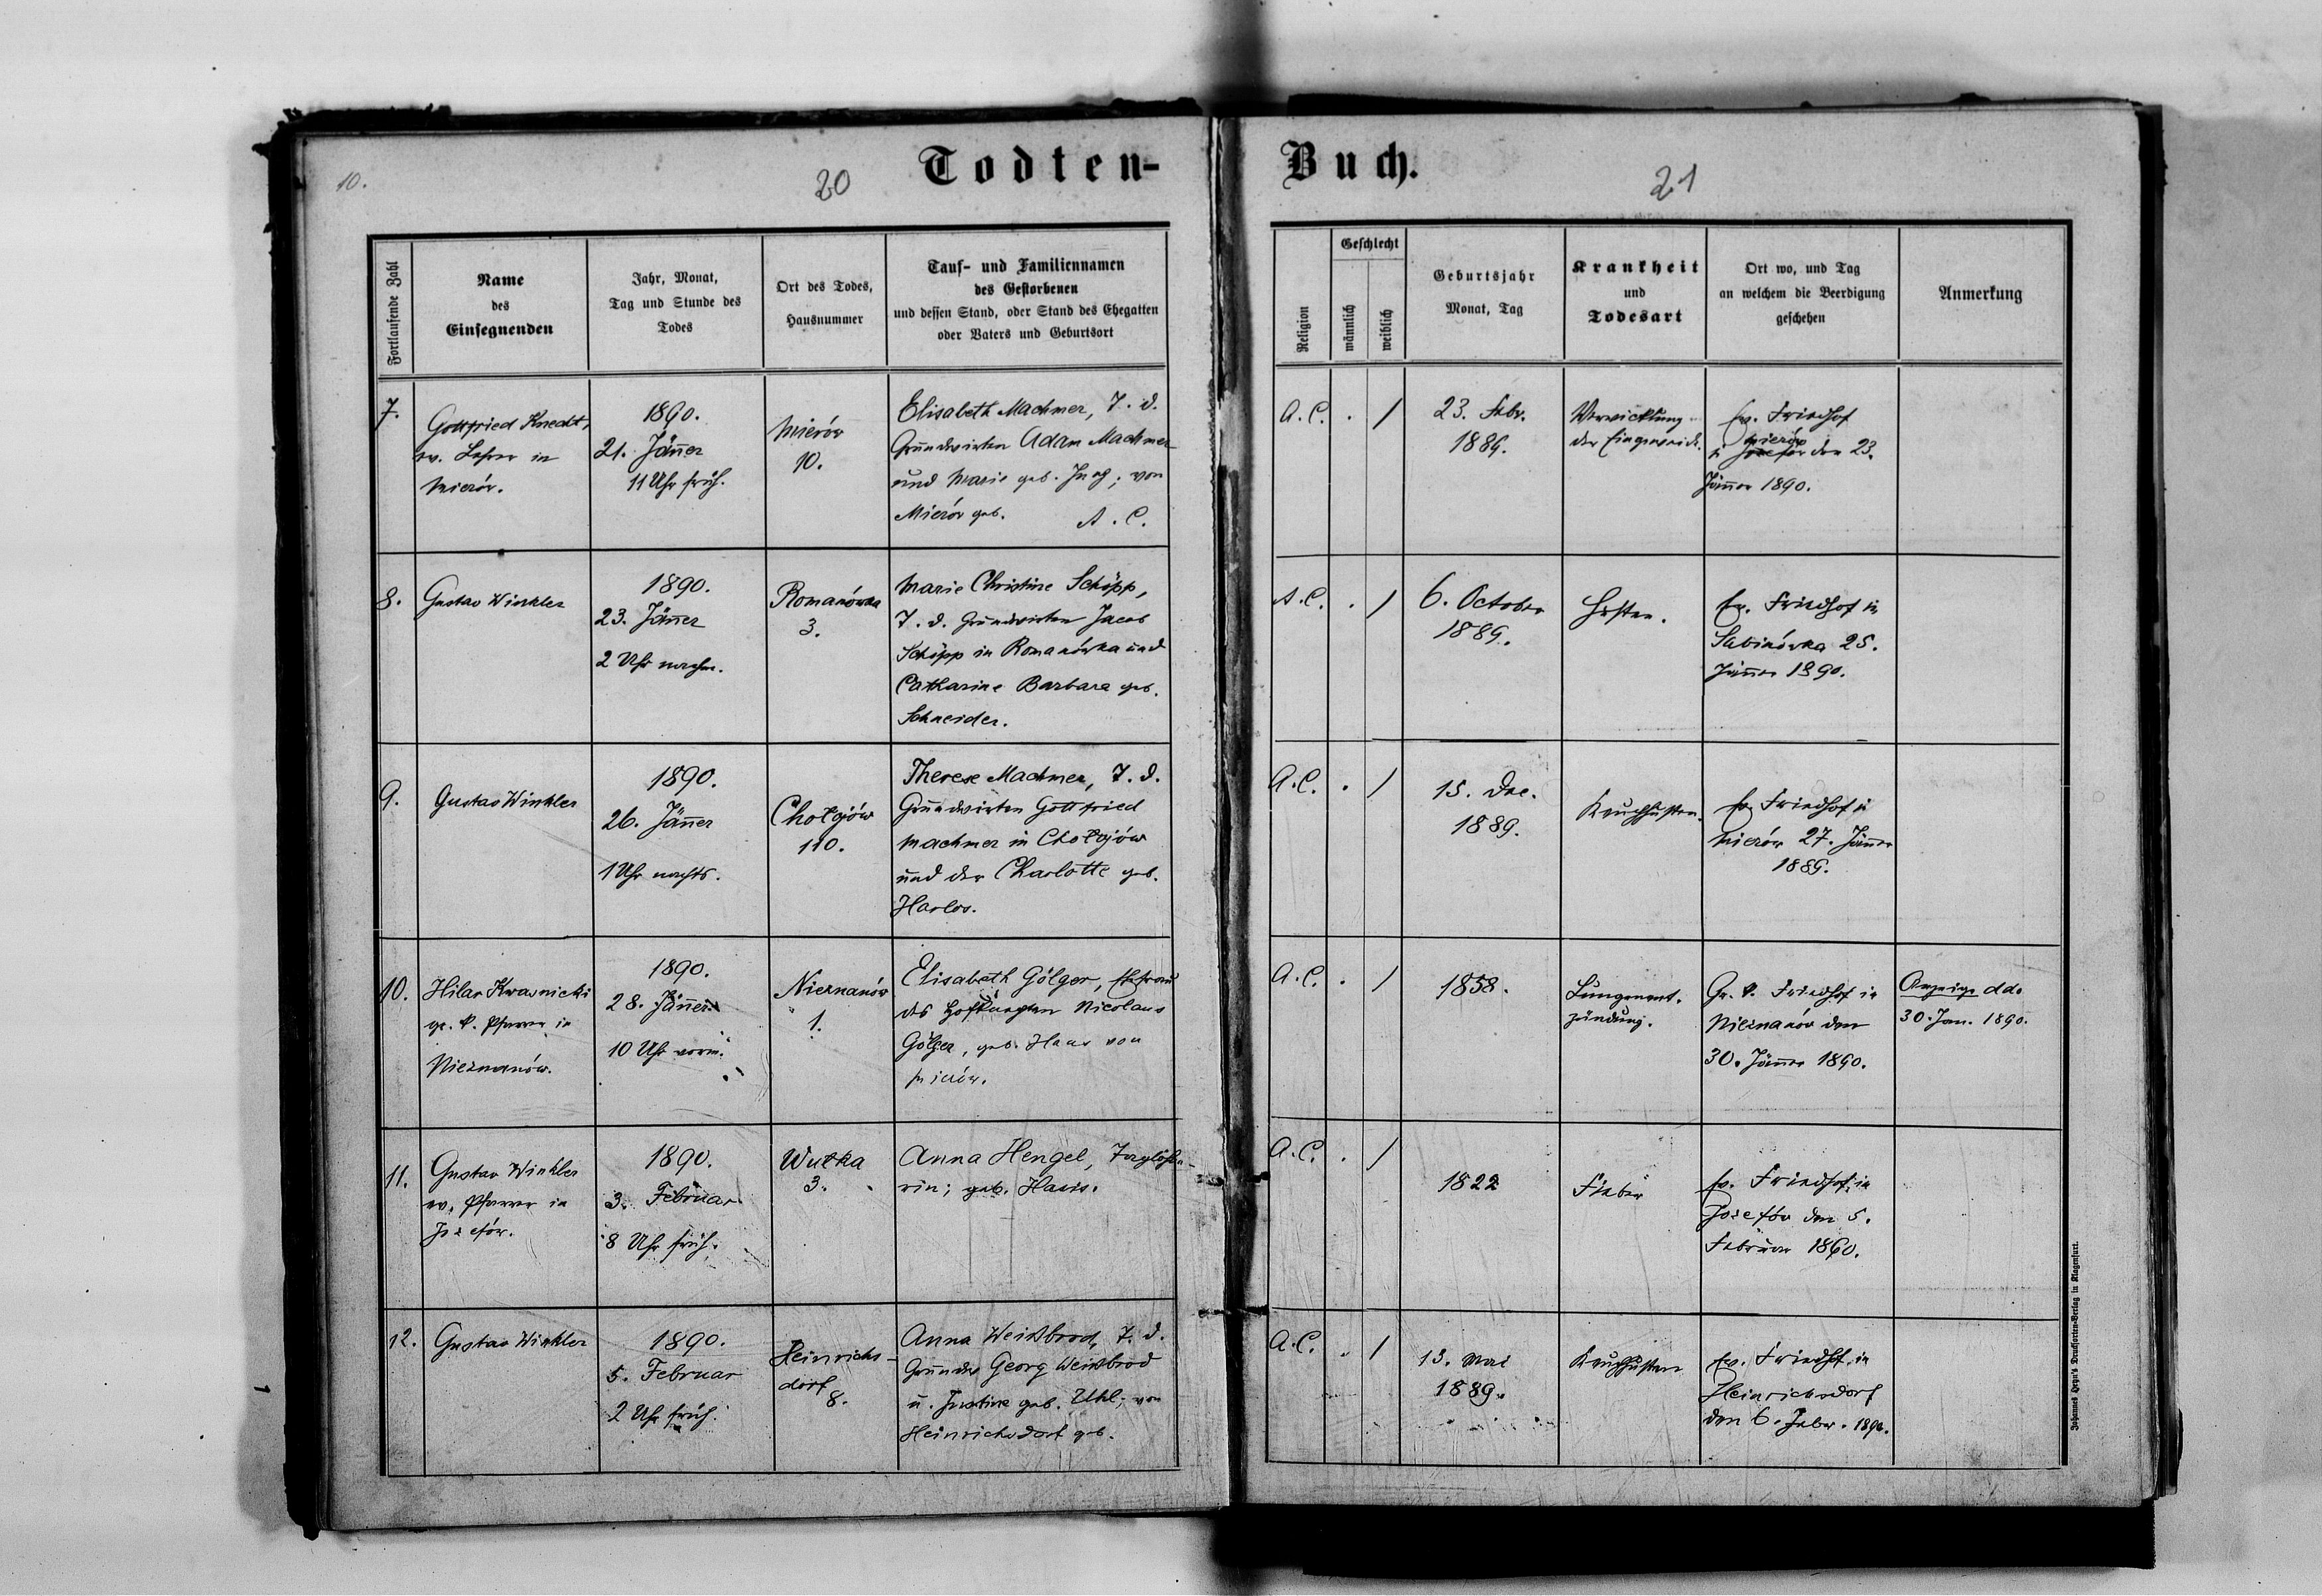 10.
20
Todten-
Fortlaufende Zahl
Name
des
Einsegnenden
Jahr, Monat,
Tag und Stunde des
Todes
Ort des Todes,
Hausnummer
Tauf- und Familiennamen
des Gestorbenen
und dessen Stand, oder Stand des Ehegatten
oder Vaters und Geburtsort
7.
Gottfried Knecht,
ev. Lehrer in
Mierów.
1890.
21. Jänner
11 Uhr früh.
Mierów
10.
Elisabeth Machmer, T. d.
Grundwirten Adam Machmer
und Marie geb. Jung; von
Mierów geb. A. C.
8.
Gustav Winkler
1890.
23. Jänner
2 Uhr nachm.
Romanówka
3.
Marie Christine Schöpp,
T. d. Grundwirten Jacob
Schöpp in Romanówka und
Catharine Barbara geb.
Schneider.
9.
Gustav Winkler
1890.
26. Jänner
1 Uhr nachts.
Chołojów
110.
Therese Machmer, T. d.
Grundwirten Gottfried
Machmer in Chołojów
und der Charlotte geb.
Harlos.
10.
Hilar Kwasnicki
gr. k. Pfarrer in
Nieznanów.
1890.
28. Jänner
10 Uhr vorm.
Nieznanów
1.
Elisabeth Gölger, Ehefrau
des Nicolaus
Gölger, geb. von
Mierów.
11.
Gustav Winkler
ev. Pfarrer in
Józefów.
1890.
3. Februar
8 Uhr früh.
Wułka
3.
Anna Hengel, Taglöhne-
rin; geb.
12.
Gustav Winkler
1890.
5. Februar
2 Uhr früh.
Heinrichs-
dorf
8.
Anna Weißbrod, T. d.
Georg Weißbrod
u. Justine geb. Uhl; von
Heinrichsdorf geb.
Buch.
21
Religion
Geschlecht
männlich
weiblich
Geburtsjahr
Monat, Tag
Krankheit
und
Todesart
Ort wo, und Tag
an welchem die Beerdigung
geschehen
Anmerkung
A. C. . /
23. Febr.
1889.
Verwicklung
der Eingeweide.
Ev. Friedhof
Mierów
in Josefów den 23.
Jänner 1890.
A. C. . /
6. October
1889.
Husten.
Ev. Friedhof in
Sabinówka 25.
Jänner 1890.
A. C. . /
15. Dec.
1889.
Keuchhusten.
Ev. Friedhof in
Mierów 27. Jänner
1889.
A. C. . /
1858.
Lungenent-
zündung.
Gr. k. Friedhof in
Nieznanów den
30. Jänner 1890.
Anzeige dd.
30. Jan. 1890.
A. C. . /
1822
Fieber
Ev. Friedhof in
Josefów den 5.
Februar 1890.
A. C. . /
13. Mai
1889.
Keuchhusten
Ev. Friedhof in
Heinrichsdorf
den 6. Febr. 1890.
Johannes Heyn's Drucksorten-Verlag in Klagenfurt.